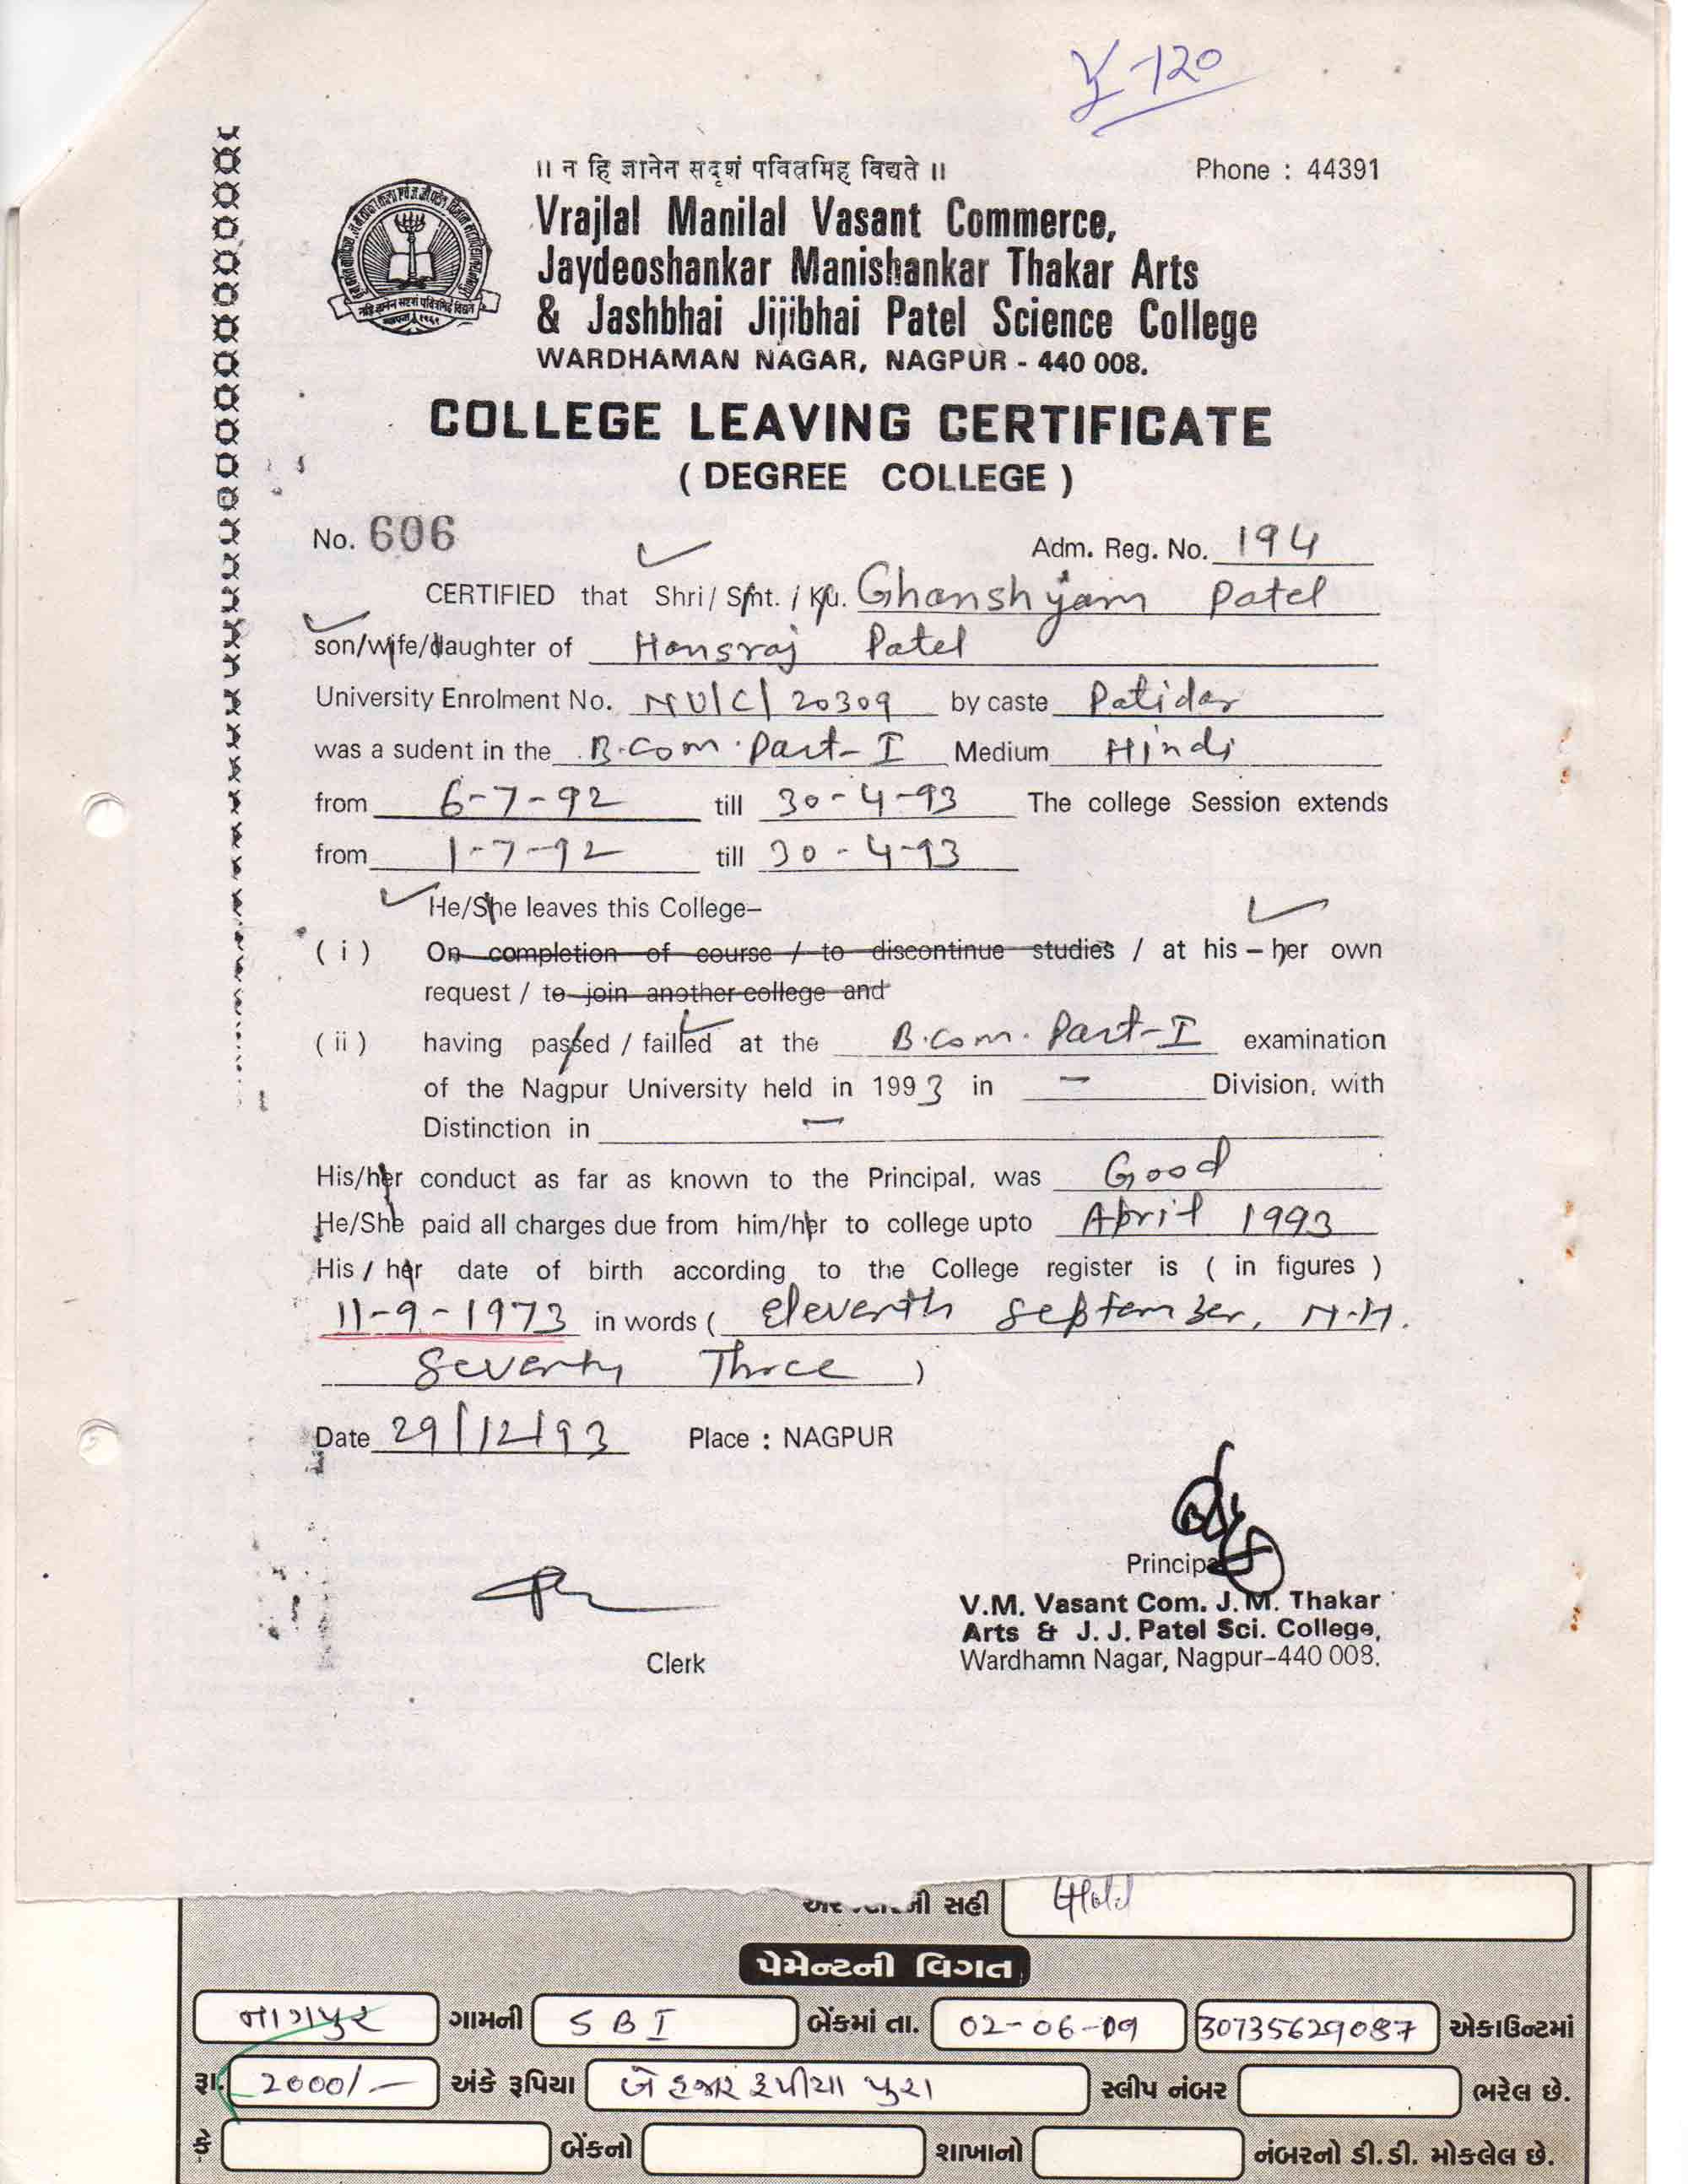 પુ-120
॥ न हि ज्ञानेन सदृशं पवित्रमिह विद्यते ॥
Phone : 44391
Vrajlal Manilal Vasant Commerce,
Jaydeoshankar Manishankar Thakar Arts
& Jashbhai Jijibhai Patel Science College
WARDHAMAN NAGAR, NAGPUR - 440 008.
COLLEGE LEAVING CERTIFICATE
( DEGREE COLLEGE )
No. 606
Adm. Reg. No. 194
CERTIFIED that Shri / Smt. / Ku. Ghanshyam Patel
son/wife/daughter of Hansraj Patel
University Enrolment No. NU/C/20309 by caste Patidar
was a sudent in the B.Com. Part-I Medium Hindi
from 6-7-92 till 30-4-93 The college Session extends
from 1-7-92 till 30-4-93
He/She leaves this College–
( i ) On completion of course / to discontinue studies / at his – her own
request / to join another college and
( ii ) having passed / failled at the B.Com. Part-I examination
of the Nagpur University held in 1993 in — Division, with
Distinction in —
His/her conduct as far as known to the Principal, was Good
He/She paid all charges due from him/her to college upto April 1993
His / her date of birth according to the College register is ( in figures )
11-9-1973 in words ( Eleventh September, N.H.
Seventy Three )
Date 29/12/93 Place : NAGPUR
Principal
V.M. Vasant Com. J. M. Thakar
Arts & J. J. Patel Sci. College,
Wardhamn Nagar, Nagpur–440 008.
Clerk
સહી
પેમેન્ટની વિગત
નાગપુર ગામની SBI બેંકમાં તા. 02-06-09 30735629087 એકાઉન્ટમાં
રૂા. 2000/- અંકે રૂપિયા બે હજાર રૂપીયા પુરા સ્લીપ નંબર ભરેલ છે.
કે બેંકનો શાખાનો નંબરનો ડી.ડી. મોકલેલ છે.